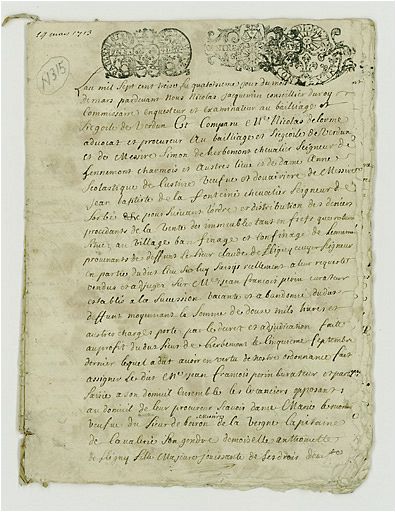 19 mars 1713
N 315
Lan mil sept cent treize le quatorzieme jour du mois
de mars pardevant Nous Nicolas Jacquemin conseiller du roy
Commissaire enquesteur et examinateur au bailliage et
siege de Verdun Est Comparu Me Nicolas delorme
advocat et procureur Au Bailliage et siege de Verdun
et de Messire Simon de herbemont chevalier Seigneur de
charmois et Austres lieux et de dame Anne
Scolastique de Custine Veufve et douairiere de Messire
Jean baptiste de la fontaine chevalier Seigneur de
Sorbé pour suivant lordre et distribution des deniers
procedants de la Vente des immeubles tant en fiefs que roture
situés au village ban finage et confinage de
provenants de deffunt le Sieur Claude de fligny ecuyer Seigneur
en partie dudit lieu à leur requeste
vendus et adjugés sur Me Jean françois porin curateur
establis a la succession vacante et abandonné dudit
deffunt moyennant la Somme de douze mils livres et
austres charges porté par le decret et adjudication faite
au profit dudit Sieur de herbemont le cinquieme Septembre
dernier lequel a dit avoir en vertu de nostre ordonnance fait
assigner ledit Me Jean françois porin curateur et
saisie a son domicil Ensemble les creanciers opposants
au domicil de leur procureur scavoir dame Marie
veufve du Sieur de boiron de la Vergne Capitaine
de Cavallerie Son gendre demoiselle anthoinette
de fligny fille Majeure jouissante de ses droits